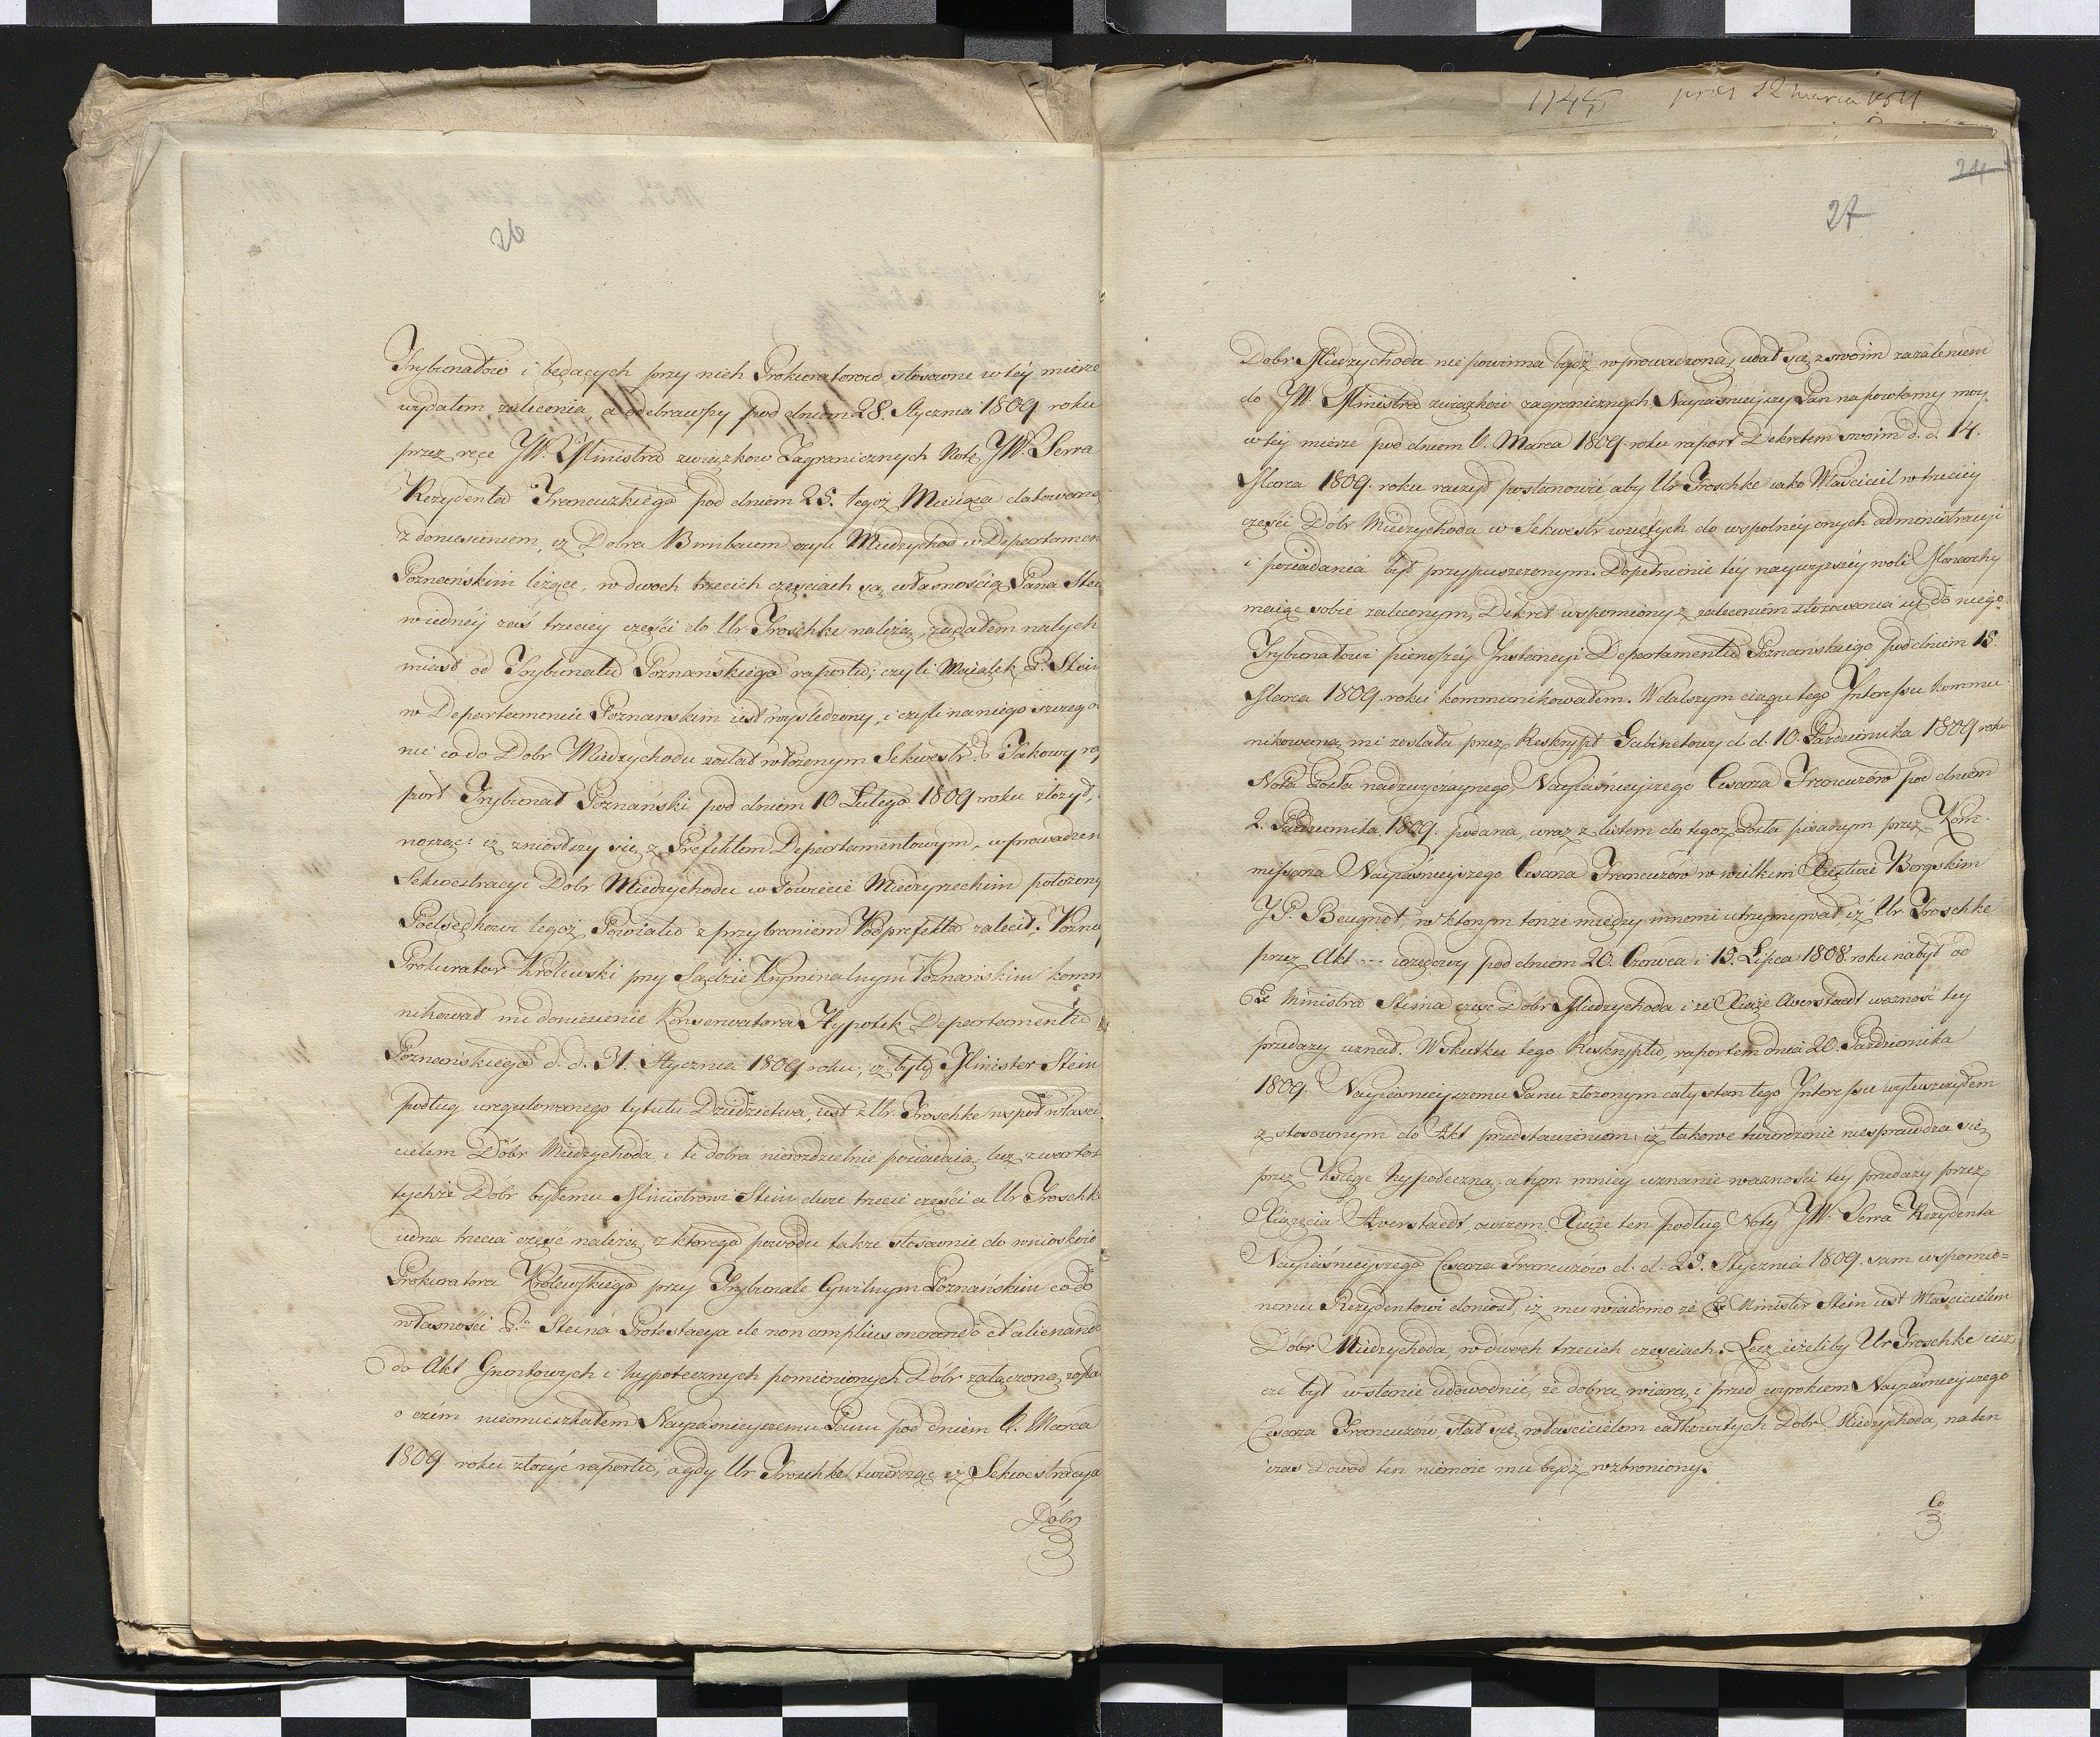 26
Trybunałów i będących przy nich Prokuratorów stosowne w téy mierze
wydałem zalecenia, a odebrawszy pod dniem 28 Stycznia 1809 roku
przez ręce JW. Ministra związkow Zagranicznych Notę JW. Serra
Rezydenta Francuzkiégo pod dniem 25. tegoż Miesiąca datowaną
z doniesieniem, iż Dobra Birnbaum czyli Miedzychod w Departamen
Poznańskim leżące, w dwoch trzecich częsciach są własnością Pana Stei
w iednéy zaś trzeciey części do Ur. Troschke należą, żądałem natych
miast od Trybunału Poznańskiego raportu; czyli Maiątek P. Stein
w Departamencie Poznanskim iest wysledzony, i czyli na niego szczegó
nie co do Dobr Miedzychodu został włożonym Sekwestr? Takowy ra
port Trybunał Poznański pod dniem 10 Lutego 1809 roku złożył,
nosząc: iż zniosłszy się z Prefektem Departamentowym, wprowadzen
Sekwestracyi Dobr Miedzychodu w Powiecie Miedzyrzeckim położony
Podsędkowi tegoż Powiatu z przybraniem Podprefekta zalecił.
Prokurator Królewski przy Sądzie Kryminalnym Poznańskim komm
nikował mi doniesienie Konserwatora Hypotek Departamentu
Poznańskiego d. d. 31. Stycznia 1809 roku, iż były Minister Stein
podług uregulowanego tytułu Dziedzictwa, iest z Ur. Troschke wspołwłaści
cielem Dóbr Miedzychoda, i te dobra nierozdzielnie posiadaią, lecz z wartoś
tychże Dóbr byłemu Ministrowi Stein dwie trzecie części a Ur Troschke
iedna trzecia część należą, z ktorego powodu także stosownie do wnioskow
Prokuratora Królewskiego przy Trybunale Cywilnym Poznańskim co do
własności P. Steina Protestacya de non amplius onerando et alienando
do Akt Gruntowych i hypotecznych pomienionych Dóbr załączoną zosta
o czém nieomieszkałem Nayiasnieyszemu Panu pod dniem 6. Marca
1809 roku złożyć raportu, a gdy Ur Troschke twierdząc iż Sekwestracya
Dóbr
1145 pres 12 marca 1811
24
27
Dobr Miedzychoda nie powinna bydź wprowadzoną, udał się z swoim zażaleniem
do JW. Ministra związków zagranicznych Nayiaśnieyszy Pan na powtórny moy
w téy mierze pod dniem 6. Marca 1809. roku raport Dekretem swoim d. d. 14.
Marca 1809. roku raczył postanowić, aby Ur Troschke iako Właściciel w trzeciéy
części Dóbr Miedzychoda w Sekwestr wziętych do wspolnéy onych administracyi
i posiadania był przypuszczonym. Dopełnienie téy naywyższéy woli Monarchy
maiąc sobie zaleconym, Dekret wspomiony z zaleceniem stosowania się do niego
Trybunałowi pierwszéy Instancyi Departamentu Poznańskiego pod dniem 18.
Marca 1809. roku kommunikowałem. W dalszym ciągu tego Interessu kommu
nikowaną mi została przez Reskrypt Gabinetowy d. d. 10. Października 1809 roku
Nota Posła nadzwyczaynego Nayiaśnieyszego Cesarza Francuzów pod dniem
2. Października 1809. podana, wraz z listem do tegoż Posła pisanym przez Kom
missarza Nayiaśnieyszego Cesarza Francuzów w wielkim Xięztwie Bergskim
JP. Beugnot, w ktorym tenże między innemi utrzymywał iż Ur. Troschke
przez Akt urzędowy pod dniem 20. Czerwca i 15. Lipca 1808. roku nabył od
Ex Ministra Steina część Dobr Miedzychoda i że Xiąże Averstaedt ważność tey
przedaży uznał. W skutku tego Reskryptu, raportem dnia 20. Października
1809. Nayiasnieyszemu Panu złożonym cały stan tego Interessu wyłuszczyłem
z stosownym do Akt przedstawieniem: iż takowe twierdzenie niesprawdza się
przez Księgę hypoteczną, a tym mniéy uznanie ważności téy przedaży przez
Xiążęcia Averstaedt, owszem Xiąże ten podług Noty JW. Serra Rezydenta
Nayiaśnieyszego Cesarza Francuzów d. d. 25. Stycznia 1809. sam wspomio=
nemu Rezydentowi doniosł, iż mu wiadomo że Ex Minister Stein iest Włascicielem
Dóbr Miedzychoda w dwoch trzecich częsciach. Lecz ieżeliby Ur Troschke iesz
cze był wstanie udowodnić, że dobrą wiarą i przed wyrokiem Nayiaśnieyszego
Cesarza Francuzów, stał się włascicielem całkowitych Dobr Miedzychoda, na ten
czas Dowod ten niemoże mu bydź wzbroniony.
Co